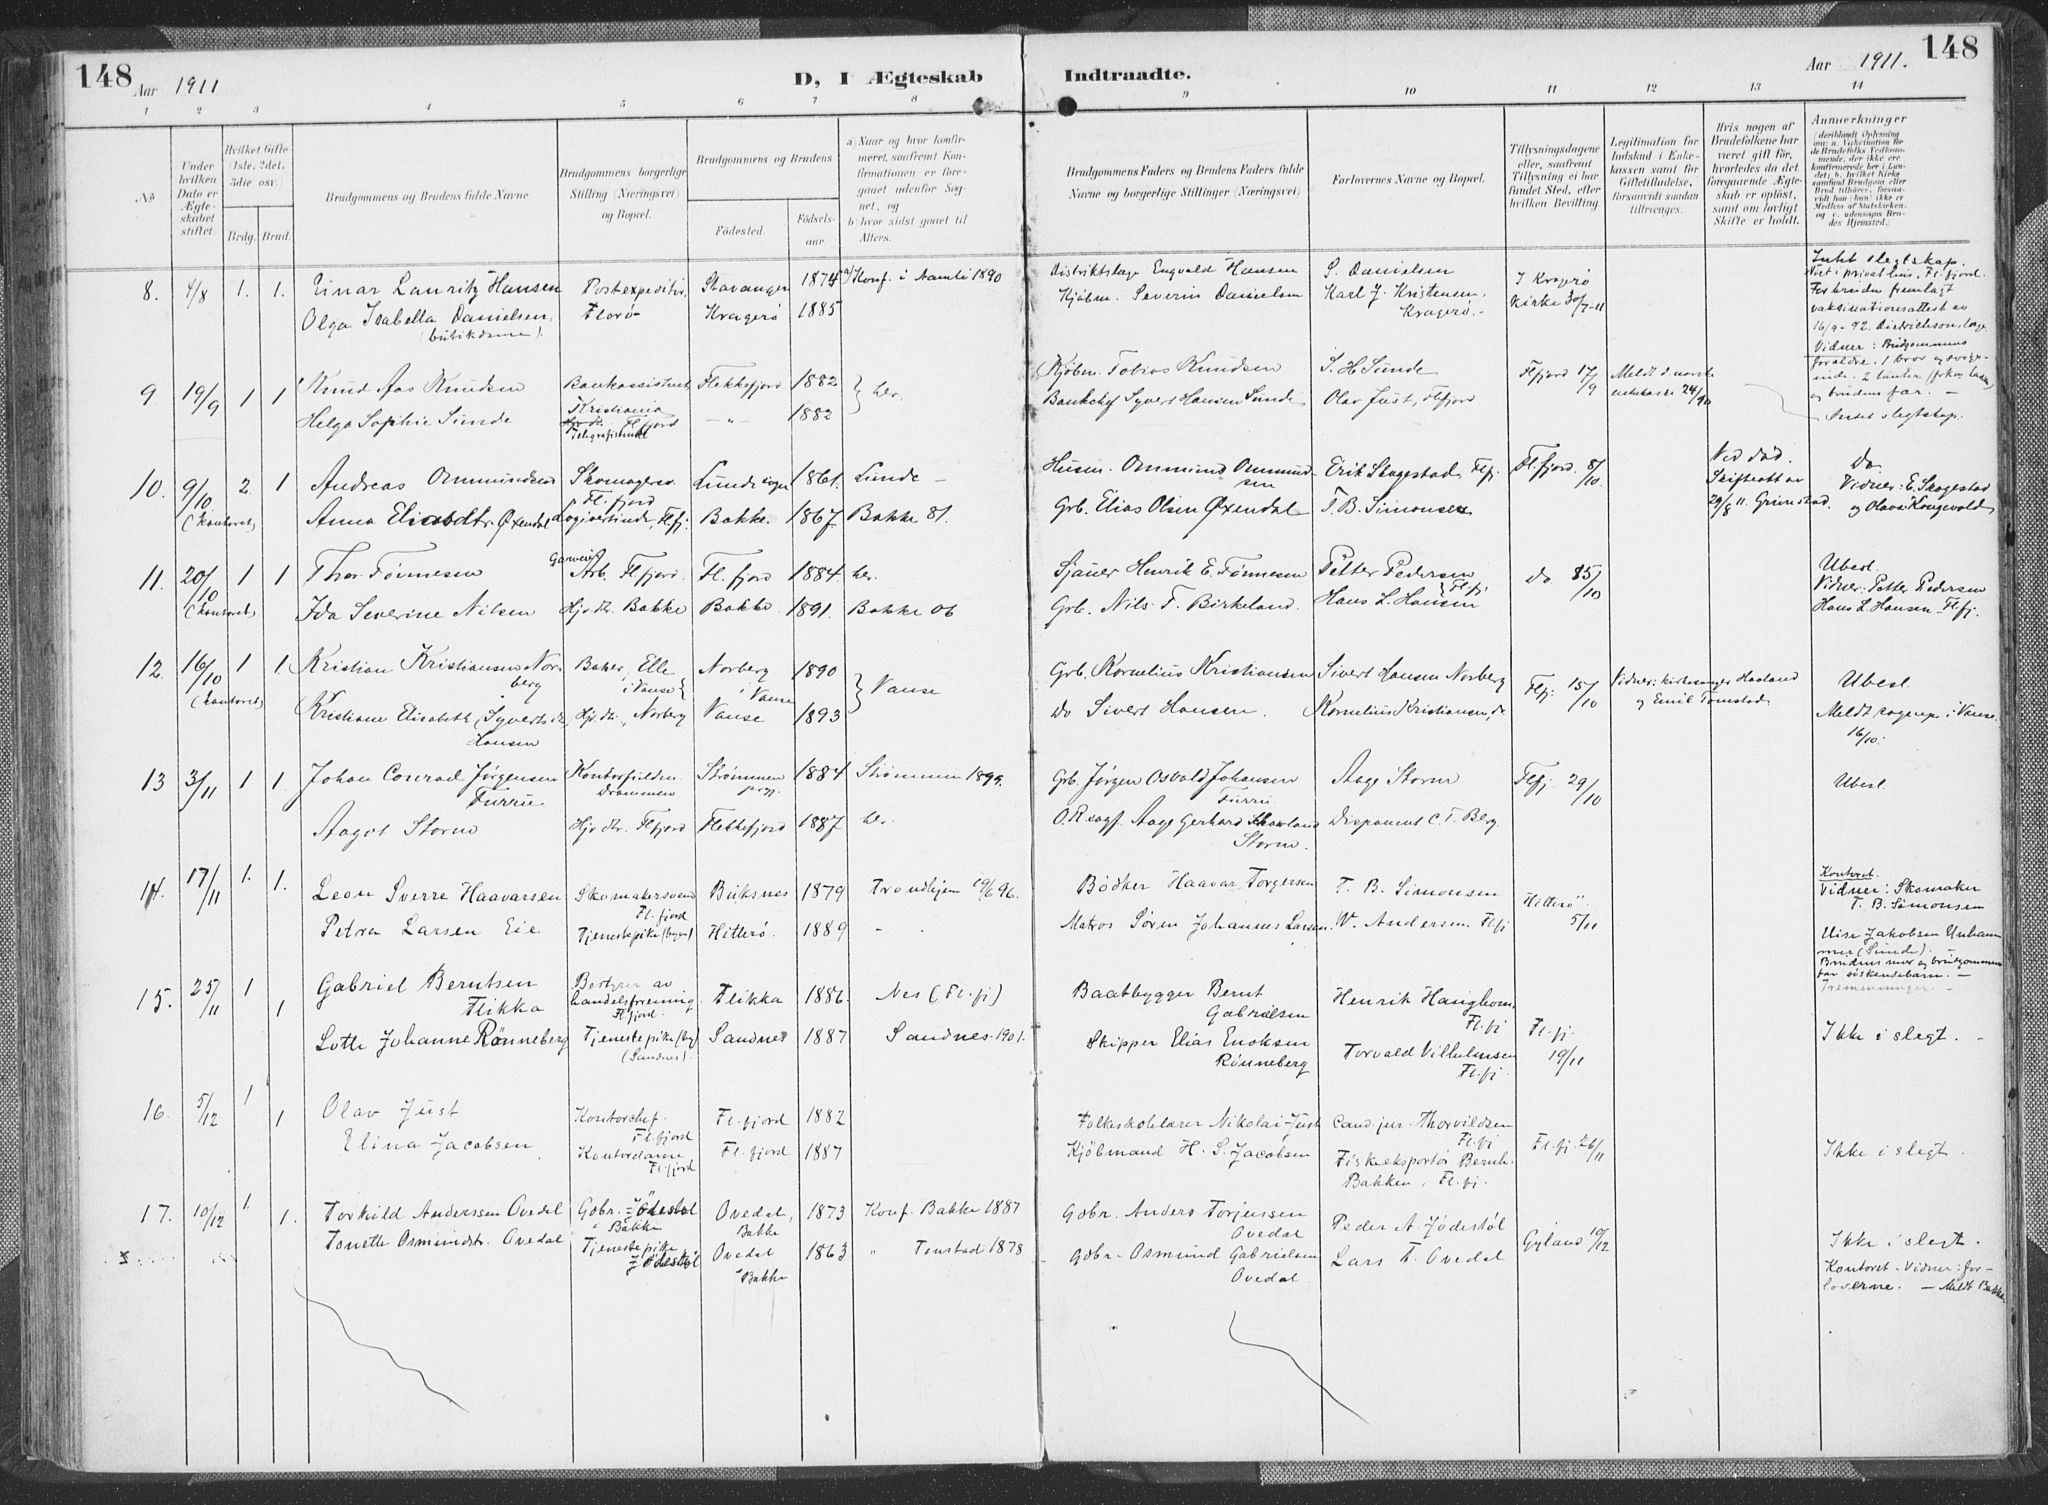 148 Aar 1911
D, I Ægteskab Indtraadte.
Aar 1911. 148
1 2 3 4 5 6 7 8 9 10 11 12 13 14
No
Under hvilken Dato er Ægteskabet stiftet.
Hvilket Gifte (1ste, 2det, 3die osv.)
Brdg. Brud.
Brudgommens og Brudens fulde Navne
Brudgommens borgerlige Stilling (Næringsvei) og Bopæl.
Brudgommens og Brudens
Fødested. Fødselsaar.
a) Naar og hvor konfirmeret, saafremt Konfirmationen er foregaaet udenfor Sognet, og
b) hvor sidst gaaet til Alters.
Brudgommens Faders og Brudens Faders fulde Navne og borgerlige Stillinger (Næringsvei)
Forlovernes Navne og Bopæl.
Tillysningsdagene eller, saafremt Tillysning ei har fundet Sted, efter hvilken Bevilling.
Legitimation for Indskud i Enkekassen samt for Giftetilladelse, forsaavidt saadan tiltrænges.
Hvis nogen af Brudefolkene har været gift før, hvorledes da det foregaaende Ægteskab er opløst, samt om lovligt Skifte er holdt.
Anmærkninger
(deriblandt Oplysning om: a. Vakcination for de Brudefolks Vedkommende, der ikke ere konfirmerede her i Landet; b. hvilket Kirkesamfund Brudgom eller Brud tilhører, forsaavidt han (hun) ikke er Medlem af Statskirken, og c. udensogns Brudes Hjemsted.
8. 4/8 1. 1. Einar Lauritz Hansen Postexpeditør, Stavanger 1874 a) Konf. i Namli 1890 Distriktslæge Engvald Hansen S. Danielsen I Kragerø
Olga Isabella Danielsen, Florø Kragerø 1885 Kjøbm. Severin Danielsen Karl J. Kristensen, Kirke 30/7-11
(butikdame). Kragerø.
Intet slegtskap.
Viet i privat hus, Fl.fjord.
For bruden fremlagt
vaksinationsattest av
16/9-92. Diedrichson, læge.
Vidner: Brudgommens
forældre, 1 bror og
2 tanter
og brudens far.
9. 19/9 1 1 Knud Aas Knudsen Bankassistent Flekkefjord 1882 } her. Kjøbm. Tobias Knudsen S. H. Sunde Flfjord 17/9 Meldt d norske
Kristiania
enkekasse 24/90
Helga Sophie Sunde Hjv. dtr. Flfjord — " — 1882 Bankchef Syvert Hansen Sunde Olav Just, Flfjord
Telegrafistinde
Intet slegtskap.
10. 9/10 2. 1 Andreas Ommundsen Skomagersv. Lunde sogn 1861. Lunde — Husm. Ommund Ommundsen Erik Skogestad, Flfj. Fl.fjord. 8/10 Ved død. Do
Fl.fjord
(kontoret) Anna Eliasdtr. Øxendal Logivertinde, Flfj. Bakke. 1867 Bakke 81. Grb. Elias Olsen Øxendal T. B. Simonsen
Skifteatt av
29/8 11. Grimstad.
Vidner: E. Skogestad
og Olava Kongevold
11. 20/10 1 1 Thor Tønnesen Garveri Arb. Fl.fjord. Fl.fjord 1884 her. Sjauer Henrik E. Tønnesen Petter Pedersen Do 15/10 Ubesl.
(kontoret) Ida Severine Nilsen Hjv. dt. Bakke Bakke 1891. Bakke 06 Grb. Nils T. Birkeland. Hans L. Hansen } Flfj
Vidner: Petter Pedersen
Hans L. Hansen Flfj.
12. 16/10 1 1. Kristian Kristiansen Norberg Baker, Elle i Vanse Norberg i Vanse 1890 } Vanse Grb. Kornelius Kristiansen Sivert Hansen Norberg Flfj. 15/10 Vidner: kirkesanger Haaland
og Emil Tomstad
Ubesl.
(kontoret) Kristiane Elisabeth Syvertsdt. Hansen Hjv. dt., Norberg Vanse 1893 Do Sivert Hansen. Kornelius Kristiansen, do.
Meldt sognepr. i Vanse.
16/10.
13 3/11 1 1. Johan Conrad Jørgensen Furru Kontorfuldm. Drammen Strømmen prgj. 1884 Strømmen 1899. Grb. Jørgen Osvald Johansen Furru Aage Storm Flfj. 29/10 Ubesl.
Aagot Storm Hjv. dtr. Flfjord Flekkefjord 1887 her. O.R.sagf. Aage Gerhard Storm. Disponent C. T. Berg.
14. 17/11 1. 1. Leon Sverre Haavarsen Skomakersvend Fl.fjord Buksnes 1879 Trondhjem 96. Bødker Haavar Torgersen T. B. Simonsen "Hitterø" 5/11
Petra Larsen Eie Tjenestepike (byen) Hitterø 1889 Matros Søren Johannes Larsen W. Andersen. Flfj
Kontoret.
Vidner: Skomaker
T. B. Simonsen
Jakobsen
(Sunde).
Brudens mor og brudgommens
far søskendebarn.
Tremenninger.
15. 25/11 1 1 Gabriel Berntsen Flikka Bestyrer av handelsforening Fl.fjord. Flikka 1886. Nes (Fl.fj) Baatbygger Bernt Gabrielsen Henrik Haughom, Fl.fj Fl.fj. 19/11
Lotte Johanne Rønneberg Tjenestepike (by) (Sandnes). Sandnes 1887 Sandnes 1901. Skipper Elias Enoksen Rønneberg Torvald Vilhelmsen Fl.fj.
Ikke i slegt.
16. 5/12 1 1 Olav Just Kontorchef. Fl.fjord Fl.fjord 1882 Folkeskolelærer Nikolai Just Cand. jur. Thorvildsen Fl.fj Fl.fj. 26/11
Elina Jacobsen Kontordame Fl.fjord Fl.fjord 1887 Kjøbmand H. S. Jacobsen Fiskeeksportør Bernh. Bakken, Fl.fj.
Ikke i slegt.
17. 10/12 1. 1. Torkild Anderssen Ovedal Gbr. Jødestøl i Bakke Ovedal, Bakke 1873 Konf. Bakke 1887 Gbr. Anders Torjussen Ovedal Peder A. Jødestøl Gyland 10/12
Tonette Osmundsdt. Ovedal Tjenestepike Jødestøl Ovedal Bakke 1863 " Tonstad 1878 Gbr. Osmund Gabrielsen Ovedal. Lars T. Ovedal
Ikke i slegt.
Kontoret. Vidner: for-
loverne. — Meldt Bakke.